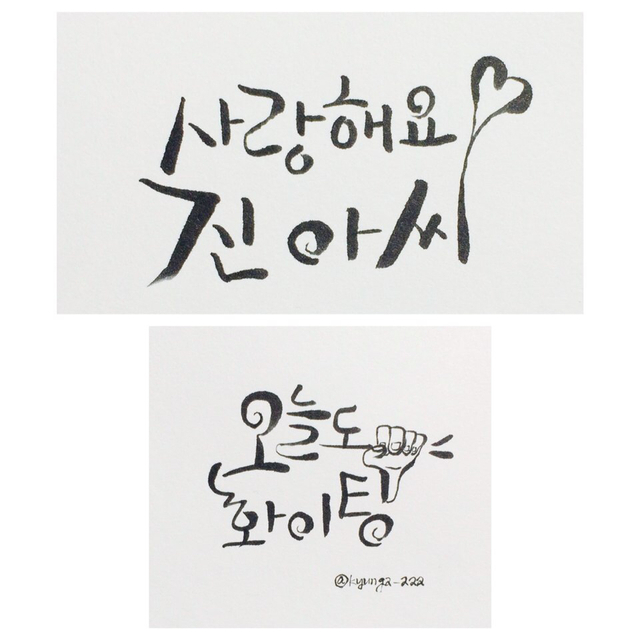 사랑해요
진아씨
오늘도
화이팅
@kyunga-222